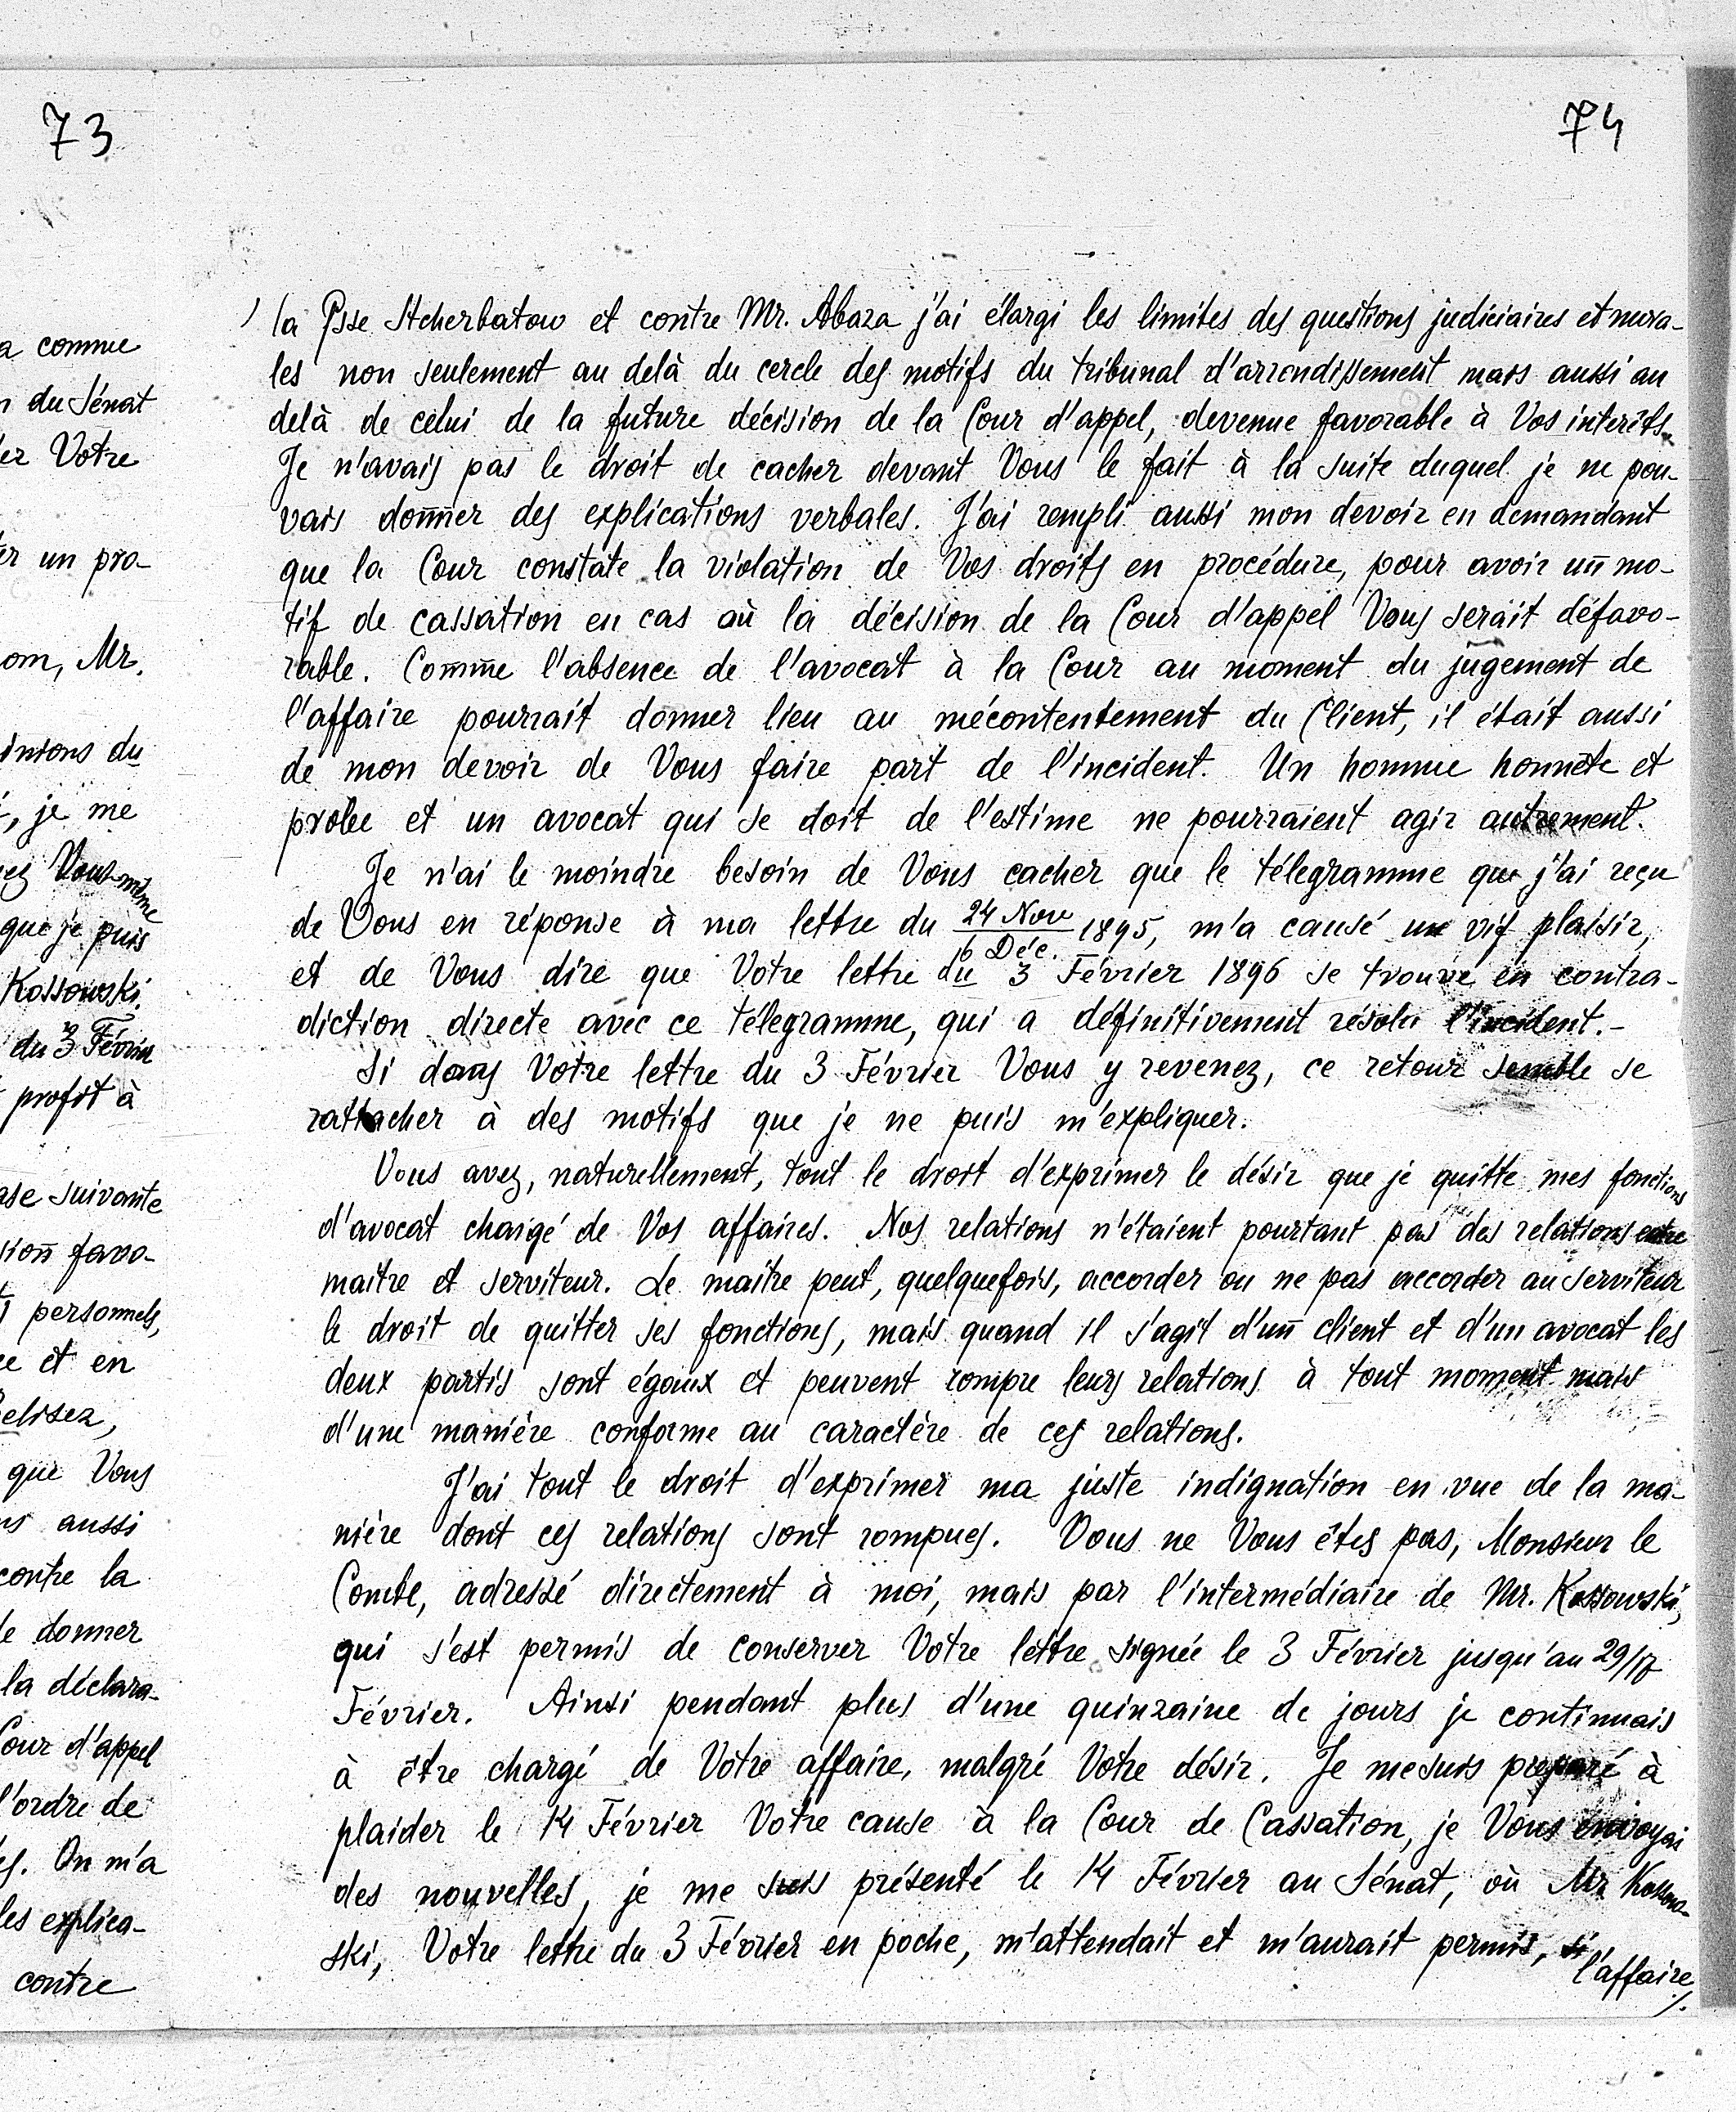 73
a comme
n du Sénat
er Votre
er un pro-
om, Mr.
inions du
, je me
ez Vous-même
que je puis
Kossowski
du 3 Février
profit à
ase suivante
sion favo-
personnels,
ce et en
elisez,
que Vous
ns aussi
contre la
de donner
la déclara-
Cour d'appel
l'ordre de
és. On m'a
les explica-
contre
74
la Psse Stcherbatow et contre Mr. Abaza j'ai élargi les limites des questions judiciaires et mora-
les non seulement au delà du cercle des motifs du tribunal d'arrondissement mais aussi au
delà de celui de la future décision de la Cour d'appel, devenue favorable à Vos interêts.
Je n'avais pas le droit de cacher devant Vous le fait à la suite duquel je ne pou-
vais donner des explications verbales. J'ai rempli aussi mon devoir en demandant
que la Cour constate la violation de Vos droits en procédure, pour avoir un mo-
tif de cassation en cas où la décision de la Cour d'appel Vous serait défavo-
rable. Comme l'absence de l'avocat à la Cour au moment du jugement de
l'affaire pourrait donner lieu au mécontentement du Client, il était aussi
de mon devoir de Vous faire part de l'incident. Un homme honnête et
probe et un avocat qui se doit de l'estime ne pourraient agir autrement.
Je n'ai le moindre besoin de Vous cacher que le télegramme que j'ai reçu
de Vous en réponse à ma lettre du 24 Nov / 6 Déc. 1895, m'a causé un vif plaisir,
et de Vous dire que Votre lettre du 3 Février 1896 se trouve en contra-
diction directe avec ce télegramme, qui a définitivement résolu l'incident.-
Si dans Votre lettre du 3 Février Vous y revenez, ce retour semble se
rattacher à des motifs que je ne puis m'expliquer.
Vous avez, naturellement, tout le droit d'exprimer le désir que je quitte mes fonctions
d'avocat chargé de Vos affaires. Nos relations n'étaient pourtant pas des relations entre
maitre et serviteur. Le maître peut, quelquefois, accorder ou ne pas accorder au serviteur
le droit de quitter ses fonctions, mais quand il s'agit d'un client et d'un avocat les
deux partis sont égaux et peuvent rompre leurs relations à tout moment mais
d'une manière conforme au caractère de ces relations.
J'ai tout le droit d'exprimer ma juste indignation en vue de la ma-
nière dont ces relations sont rompues. Vous ne Vous êtes pas, Monsieur le
Comte, adressé directement à moi, mais par l'intermédiaire de Mr. Kossowski,
qui s'est permis de conserver Votre lettre signée le 3 Février jusqu'au 29/17
Février. Ainsi pendant plus d'une quinzaine de jours je continuais
à être chargé de Votre affaire, malgré Votre désir. Je me suis preparé à
plaider le 14 Février Votre cause à la Cour de Cassation, je Vous envoyai
des nouvelles, je me suis présenté le 14 Février au Sénat, où Mr Kossow-
ski, Votre lettre du 3 Février en poche, m'attendait et m'aurait permis, si
l'affaire
./.